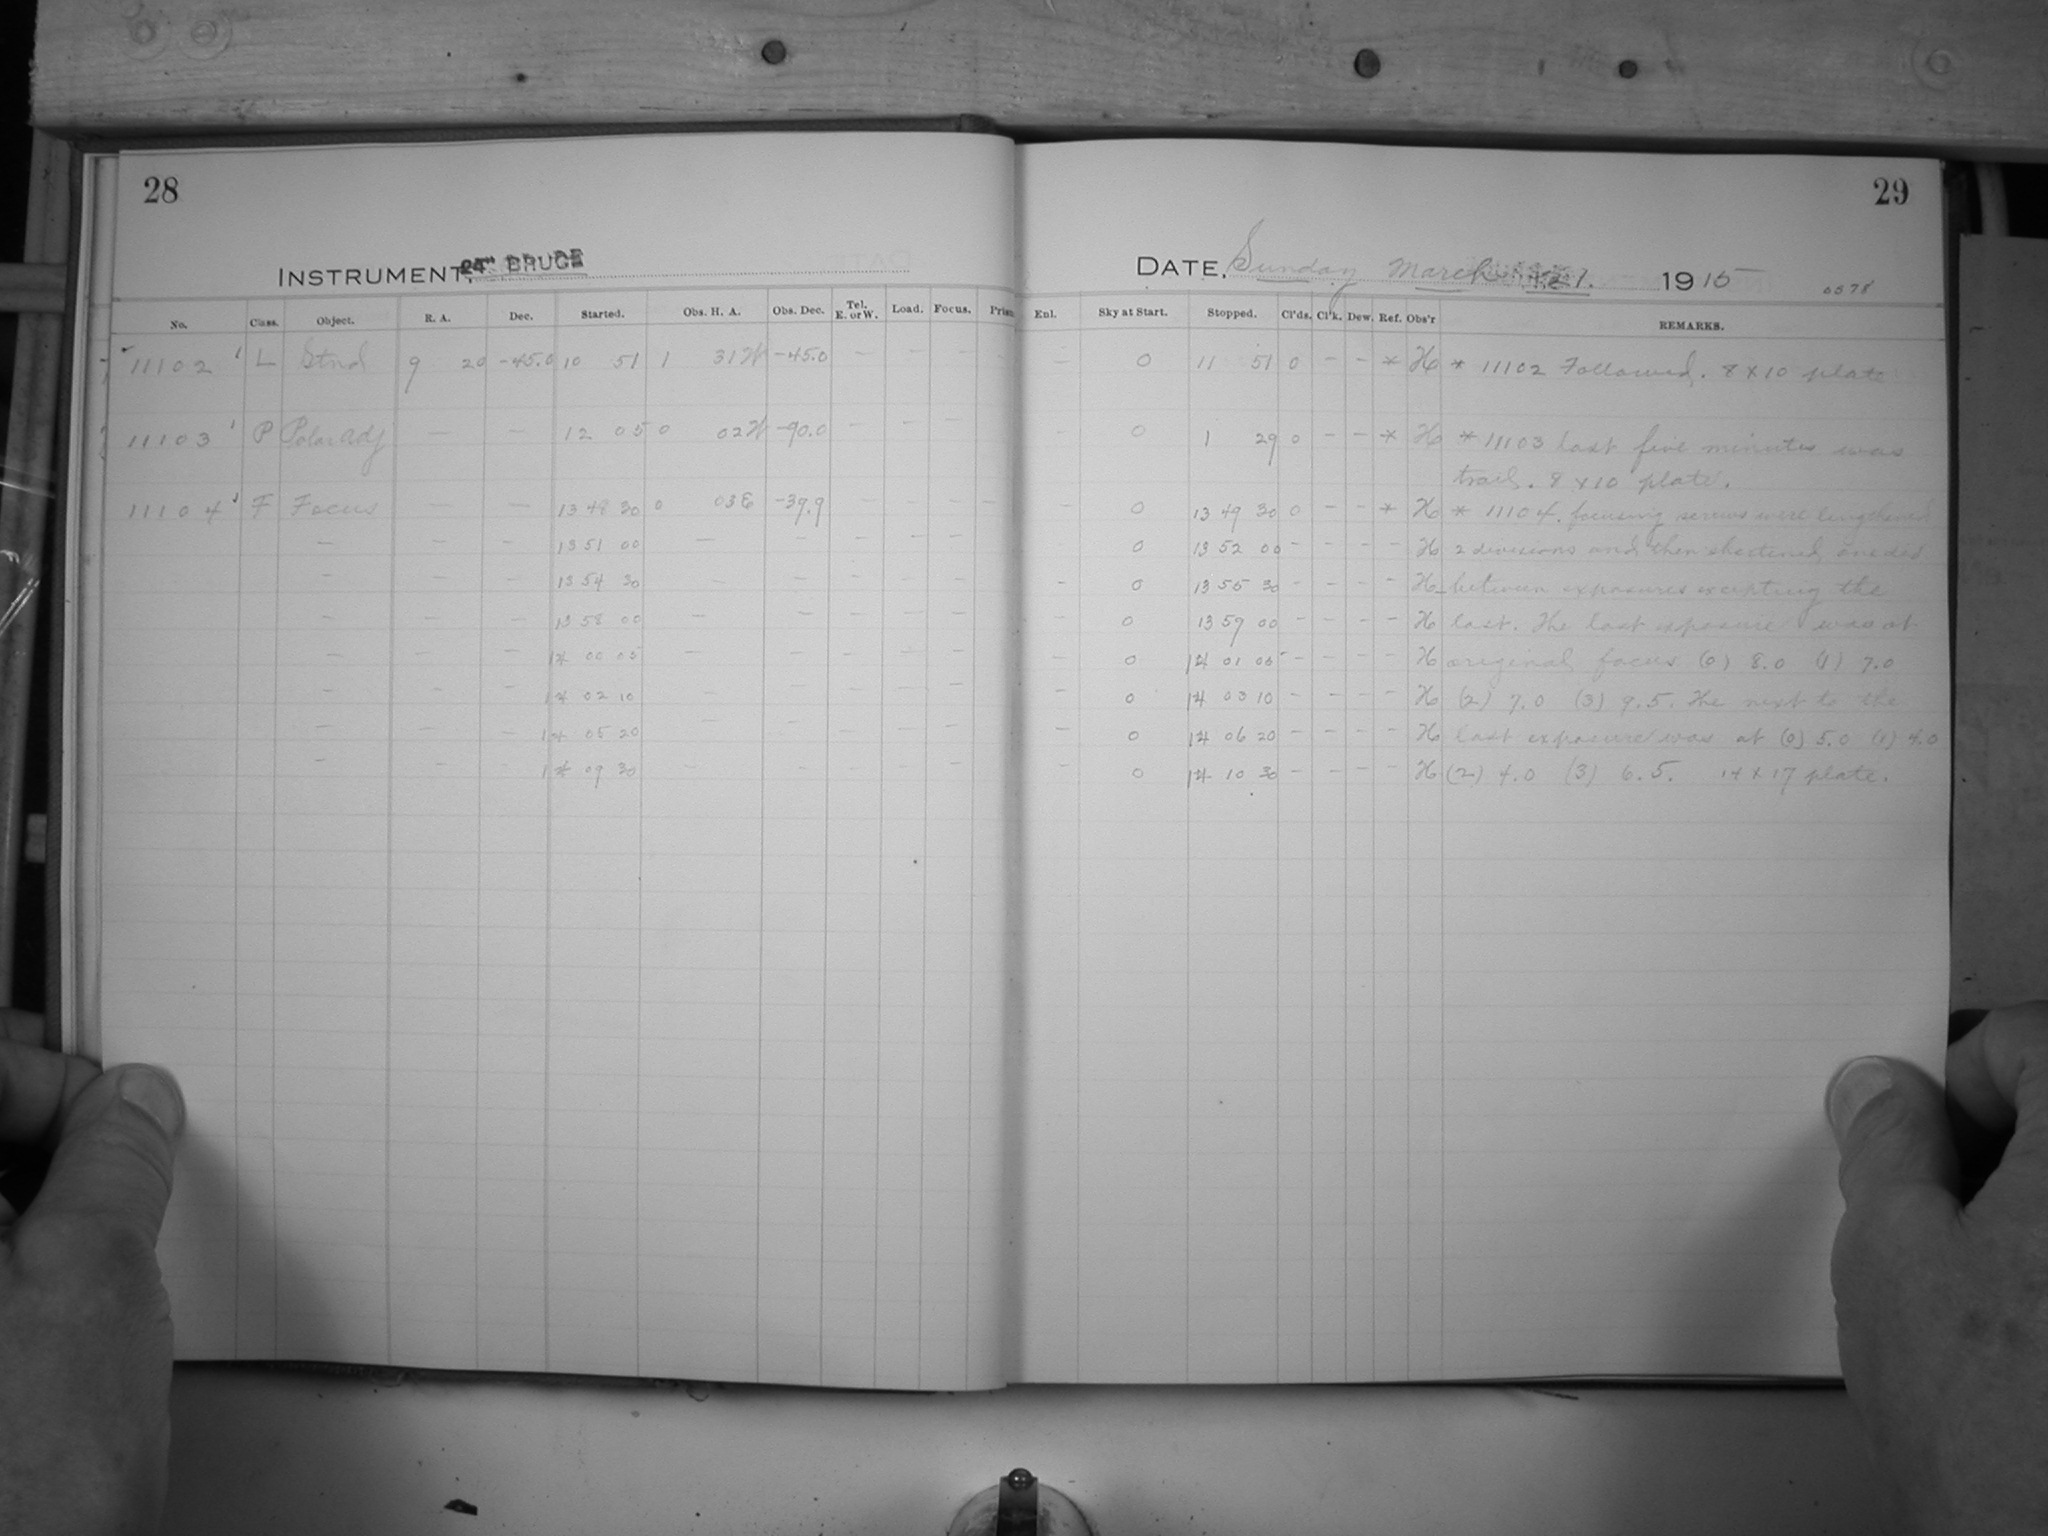 28
29
INSTRUMENT, 24" BRUCE
DATE, Sunday March 21. 1915
0578
No. Class. Object. R. A. Dec. Started. Obs. H. A. Obs. Dec. Tel. E. or W. Load. Focus. Prism
Enl. Sky at Start. Stopped. Cl'ds. Cl'k. Dew. Ref. Obs'r REMARKS.
11102 L Stnd 9 20 -45.0 10 51 1 31 W -45.0 — — — — 0 11 51 0 - - * H * 11102 Followed. 8 x 10 plate
11103 P Polar adj — — 12 05 0 02 W -90.0 — - - — - 0 1 29 0 - - * H * 11103 Last five minutes was
trail. 8 x 10 plate.
11104 F Focus — — 13 48 30 0 03 E -39.9 — — — — 0 13 49 30 0 - - * H * 11104. focusing screws were lengthened
— - - 13 51 00 — - - - - - 0 13 52 00 - - - - H 2 divisions and then shortened
- - - 13 54 30 - - - - - - - 0 13 55 30 - - - - H between exposures excepting the
- - - 13 58 00 — - - - - - - 0 13 59 00 - - - - H last. The last exposure was at
— - - 14 00 05 - - - - - - - 0 14 01 05 - - - - H original focus (0) 8.0 (1) 7.0
- - - 14 02 10 - - - - - - - 0 14 03 10 - - - - H (2) 7.0 (3) 9.5. The next to the
- - - 14 05 20 - - - - - - - 0 14 06 20 - - - - H last exposure was at (0) 5.0 (1) 4.0
- - - 14 09 30 - - - - - - - 0 14 10 30 - - - - H (2) 4.0 (3) 6.5. 14 x 17 plate.